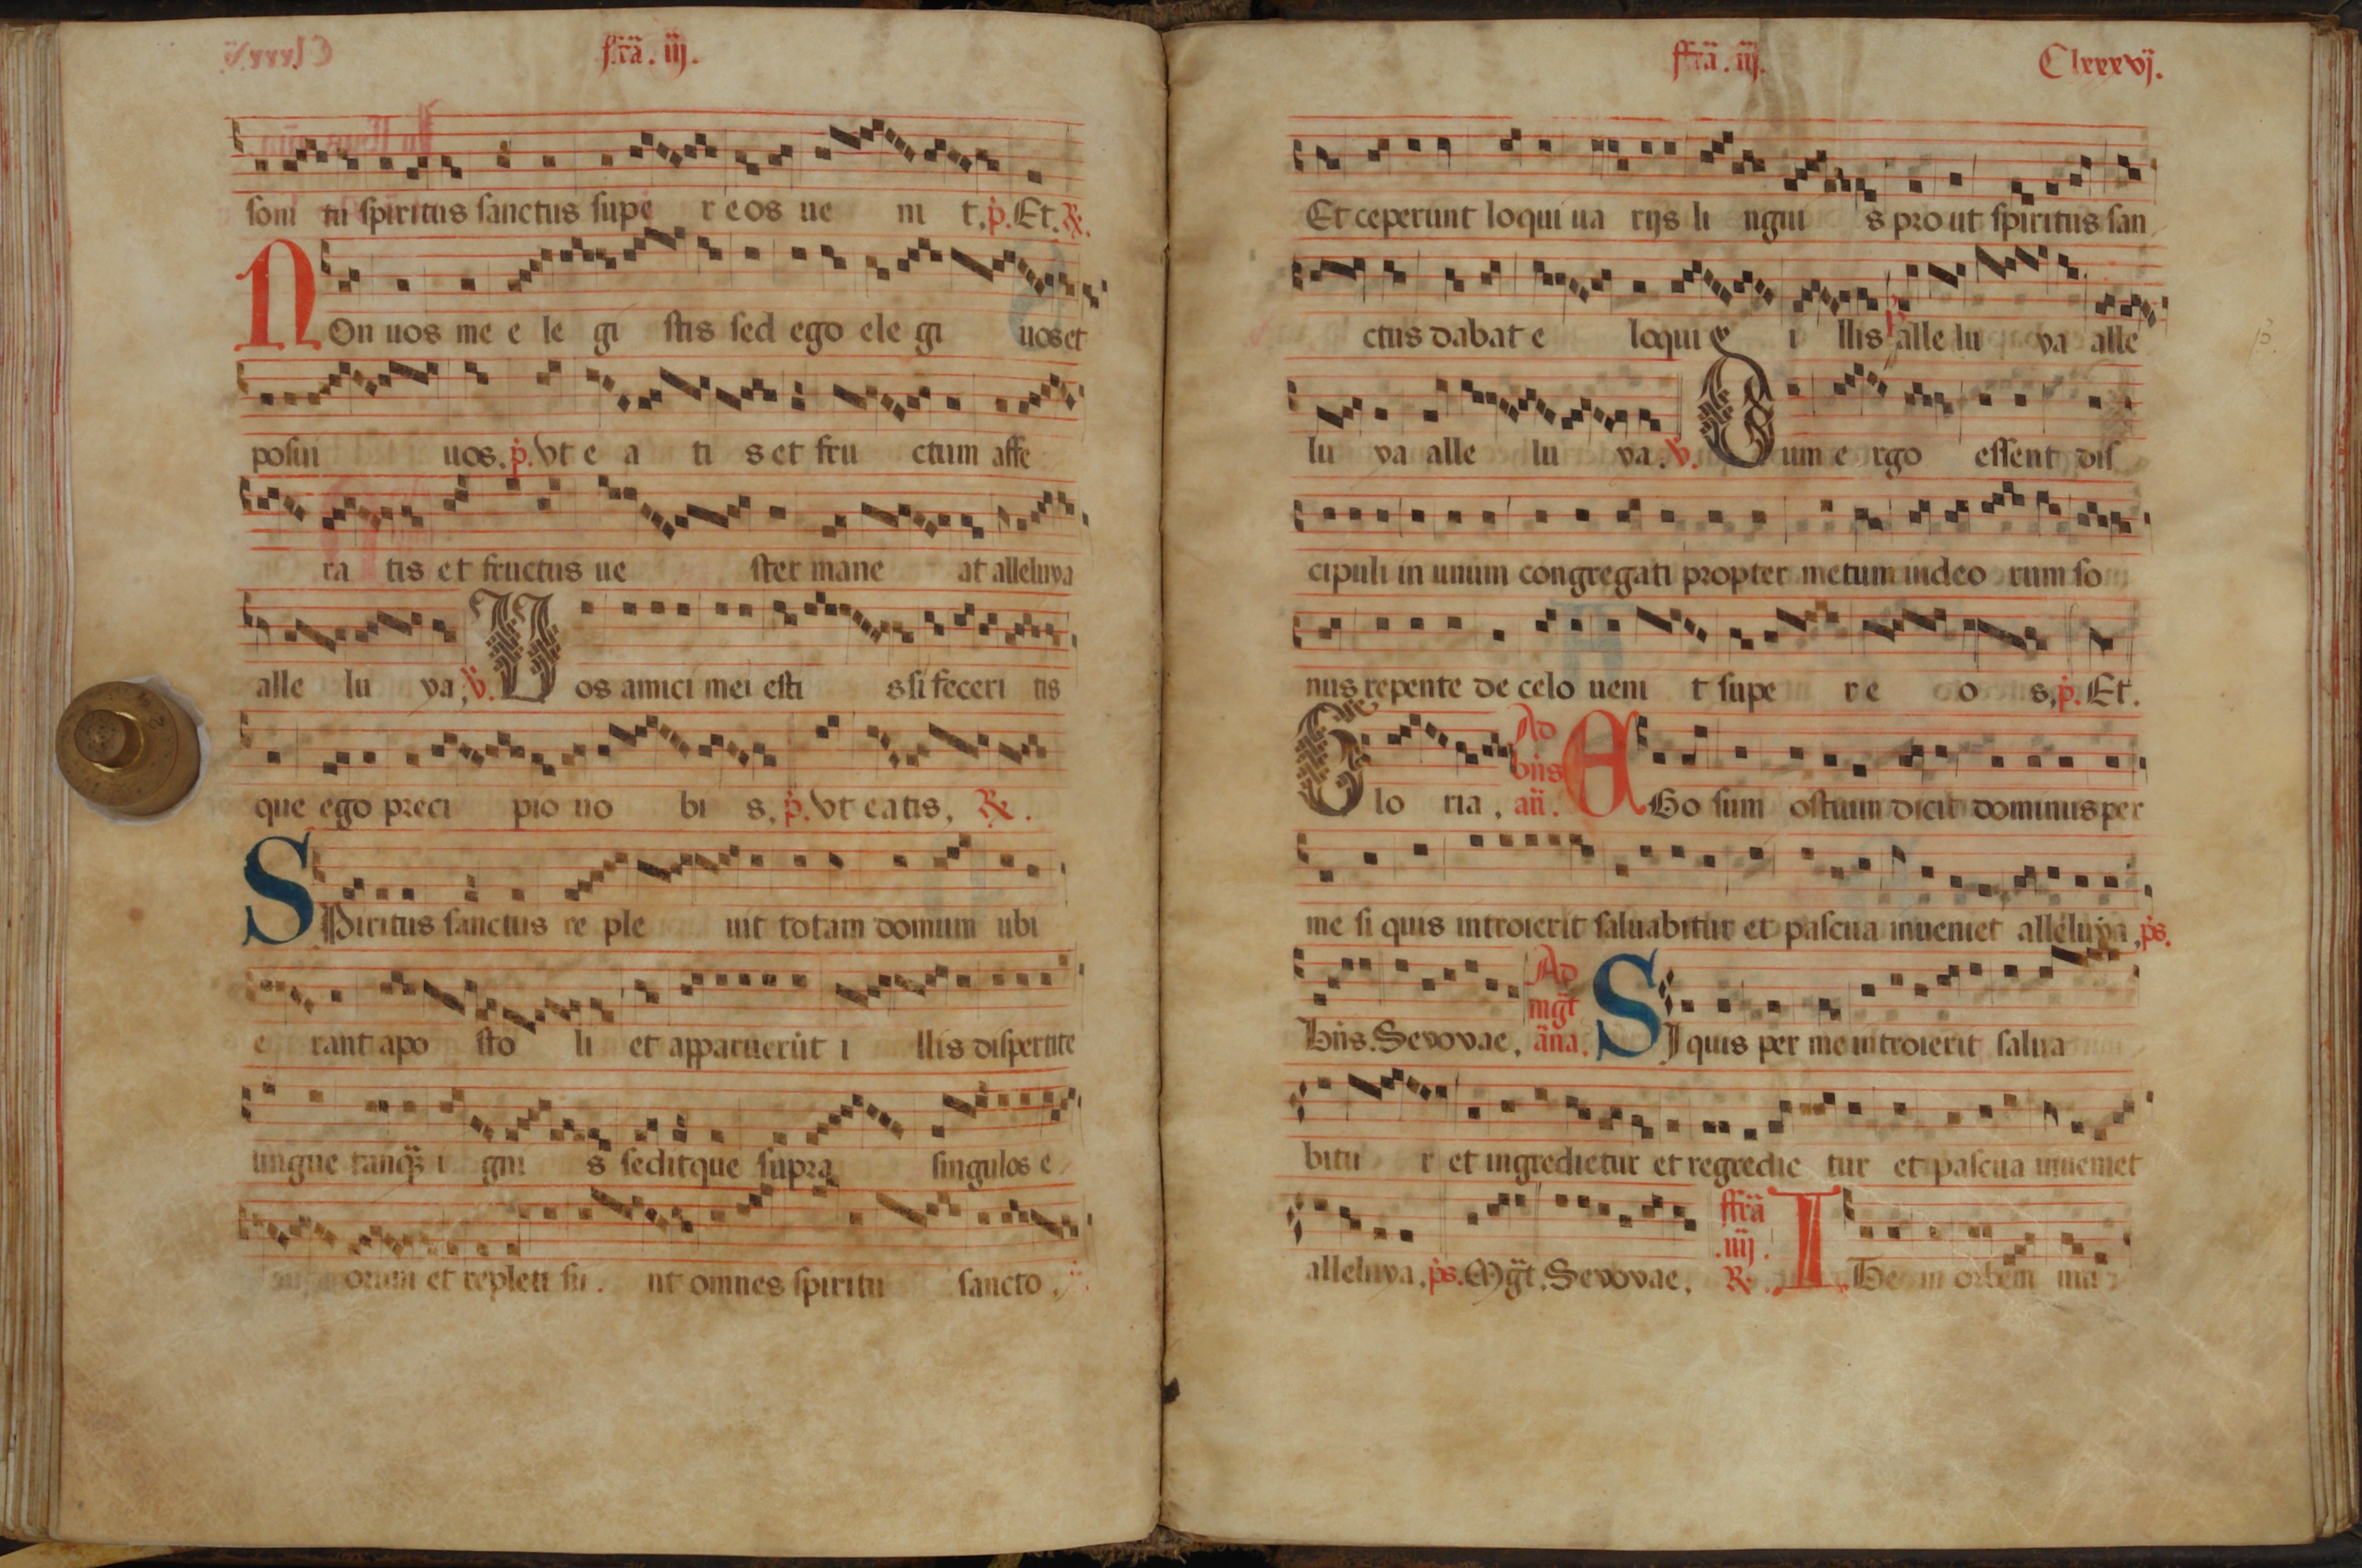 ffra. iij.
soni tu spiritus sanctus supe r eos ue ni t. p. Et. R.
NOn uos me e le gi stis sed ego ele gi uos et
posui uos. p. Vt e a ti s et fru ctum affe
ra tis et fructus ue ster mane at alleluya
alle lu ya. v. Vos amici mei esti s si feceri tis
que ego preci pio uo bi s. p. Vt eatis. R.
SPiritus sanctus re ple uit totam domum ubi
e rant apo sto li et apparuerūt i llis dispertite
lingue tanqȝ i gni s seditque supra singulos e
orum et repleti su nt omnes spiritu sancto.
ffra. iij. Clxxxvj.
Et ceperunt loqui ua rijs li ngui s prout spiritus san
ctus dabat e loqui i llis p. alle lu ya alle
lu ya alle lu ya. v. Cum e rgo essent dis
cipuli in unum congregati propter metum iudeo rum so
nus repente de celo ueni t supe r e o s. p. Et.
Glo ria. Ad bñs añ. EGo sum ostium dicit dominus per
me si quis introierit saluabitur et pascua inueniet alleluya. ps.
Bñs. Sevovae. Ad mgt̄ āna. SI quis per me introierit salua
bitu r et ingredietur et regredie tur et pascua inueniet
alleluya. ps. Mgt̄. Sevovae. ffra .iiij. R. ITe in orbem